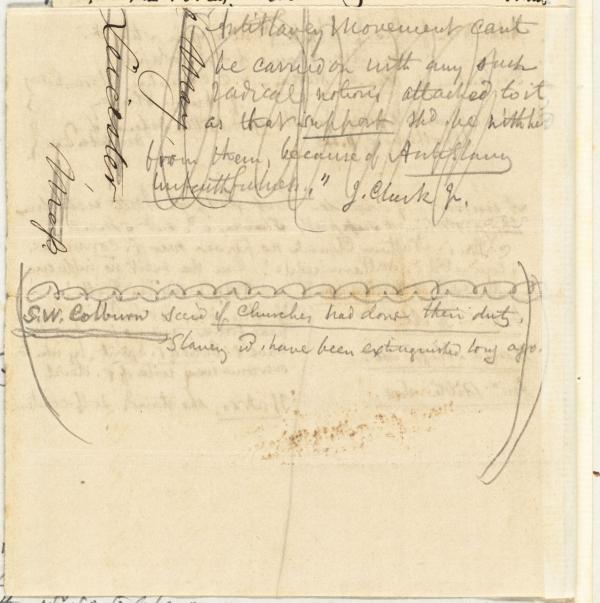 AntiSlavery Movement can't
be carried on with any such
radical notions attached to it,
as that support shd. be withhe
from them, because of AntiSlavery
unfaithfulness,"  J. Clark Jr.
May
Leicester
Mass
S.W. Colburn said if Churches had done their duty,
Slavery wd. have been extinguished long ago.